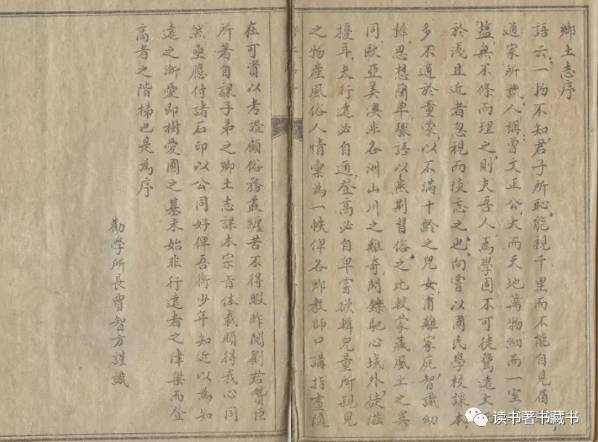 鄉土志序
語云一物不知君子所恥能視千里而不能自見眉
通家所人稱曾文正公大而天地萬物細而一室
鹽無不條而理之則夫吾人為學固不可徒騖遠大
於淺且近者忽視而後忘之也向嘗以國民學校課本
多不適於童蒙以不滿十齡之兒女甫離家庭智識幼
稚思想卑驟語以燕荆習俗之比較蒙藏風土之異
同歐亞美奧非各洲山川之離奇閎鑠馳心域外徒滋
擾耳夫行遠必自邇登高必自卑嘗欲輯兒童所親見
之物產風俗人情彙為一帙俾各鄉教師口講指畫隨
在可資以考證顧俗務叢纏苦不得暇昨閱劉君贊臣
所著自課子弟之鄉土志課本宗旨体裁頗得我心同
然亟應付諸石印以公同好俾吾少年知近以為知
遠之漸愛鄉樹愛國之基未始非行遠者之津梁而登
高者之階梯也是為序
勸學所長智方謹識
读书著书藏书